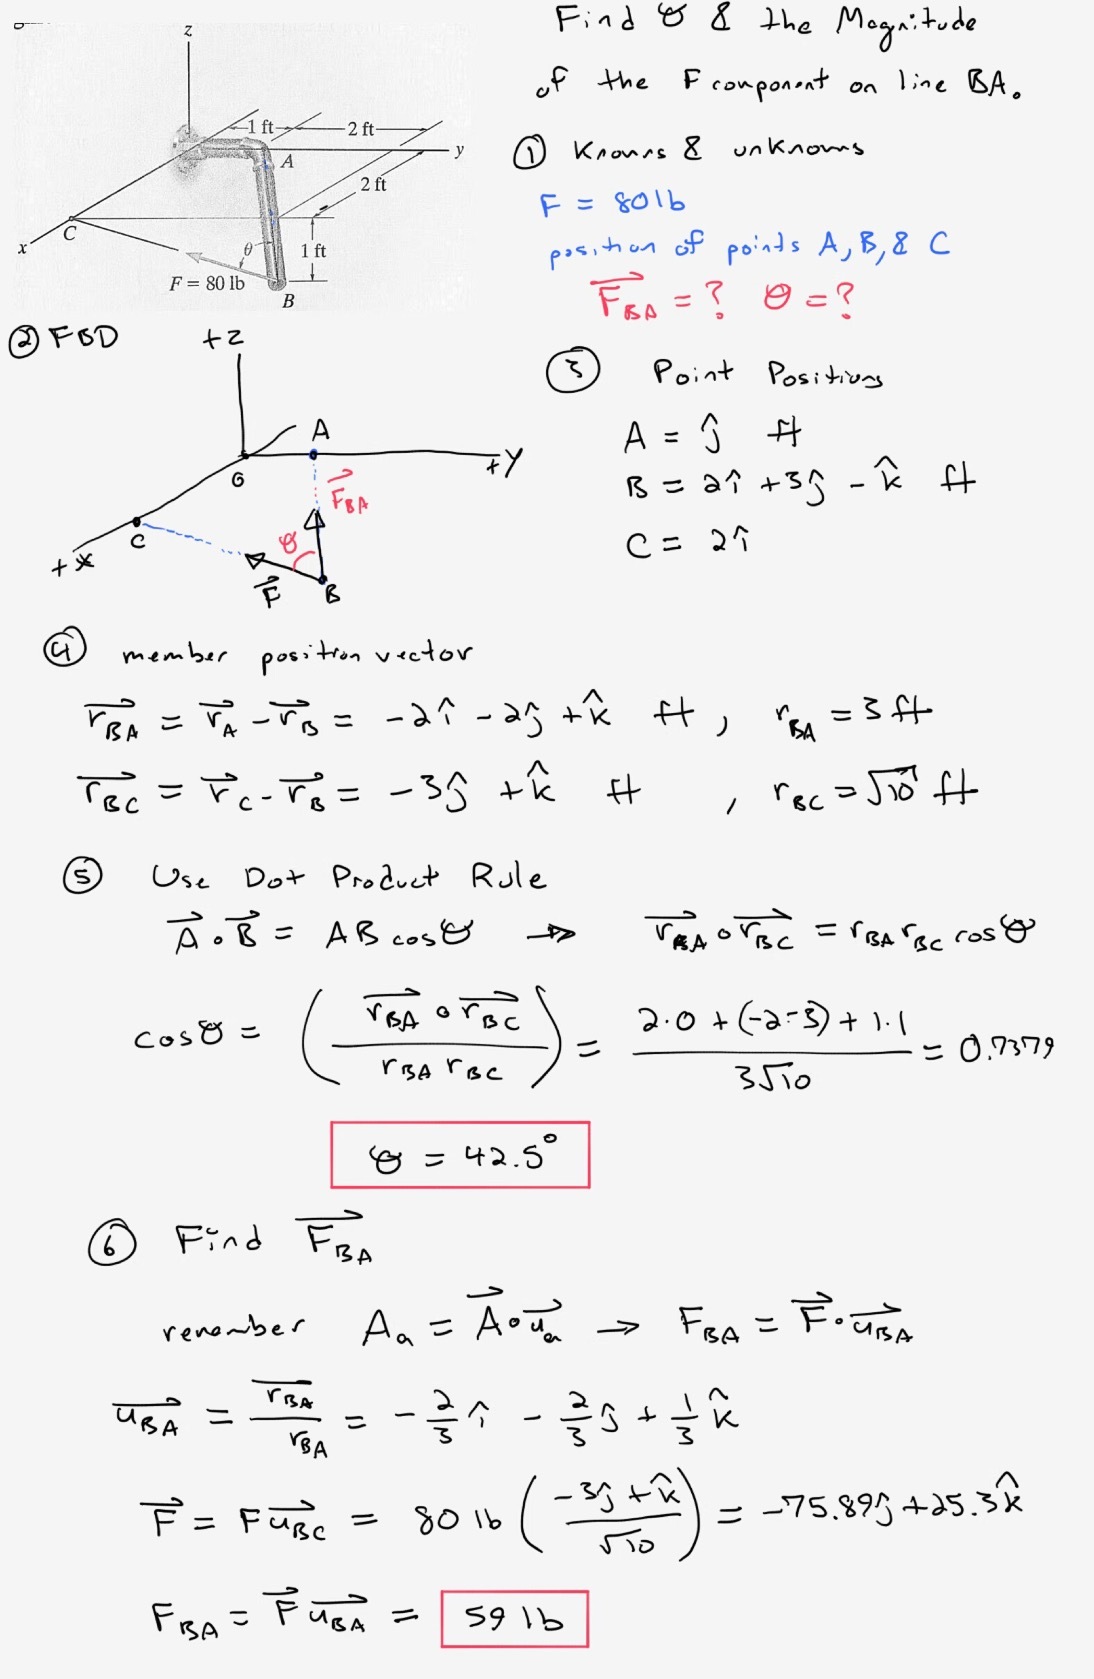 Find θ & the Magnitude
of the F component on line BA.
z
1 ft
2 ft
y
A
2 ft
C
x
θ
1 ft
F = 80 lb
B
① Knowns & unknowns
F = 80 lb
position of points A, B, & C
F⃗_BA = ? θ = ?
② FBD
+z
A
+y
G
F⃗_BA
C
+x
θ
F⃗
B
③ Point Positions
A = ĵ ft
B = 2î + 3ĵ - k̂ ft
C = 2î
④ member position vector
r⃗_BA = r⃗_A - r⃗_B = -2î - 2ĵ + k̂ ft , r_BA = 3 ft
r⃗_BC = r⃗_C - r⃗_B = -3ĵ + k̂ ft , r_BC = √10 ft
⑤ Use Dot Product Rule
A⃗ ∘ B⃗ = AB cosθ → r⃗_BA ∘ r⃗_BC = r_BA r_BC cosθ
cosθ = (r⃗_BA ∘ r⃗_BC / r_BA r_BC) = 2·0 + (-2·-3) + 1·1 / 3√10 = 0.7379
θ = 42.5°
⑥ Find F⃗_BA
remember A_a = A⃗ ∘ u⃗_a → F_BA = F⃗ · u⃗_BA
u⃗_BA = r_BA / r_BA = - 2/3 î - 2/3 ĵ + 1/3 k̂
F⃗ = F u⃗_BC = 80 lb (-3ĵ + k̂ / √10) = -75.89ĵ + 25.3k̂
F_BA = F⃗ u⃗_BA = 59 lb